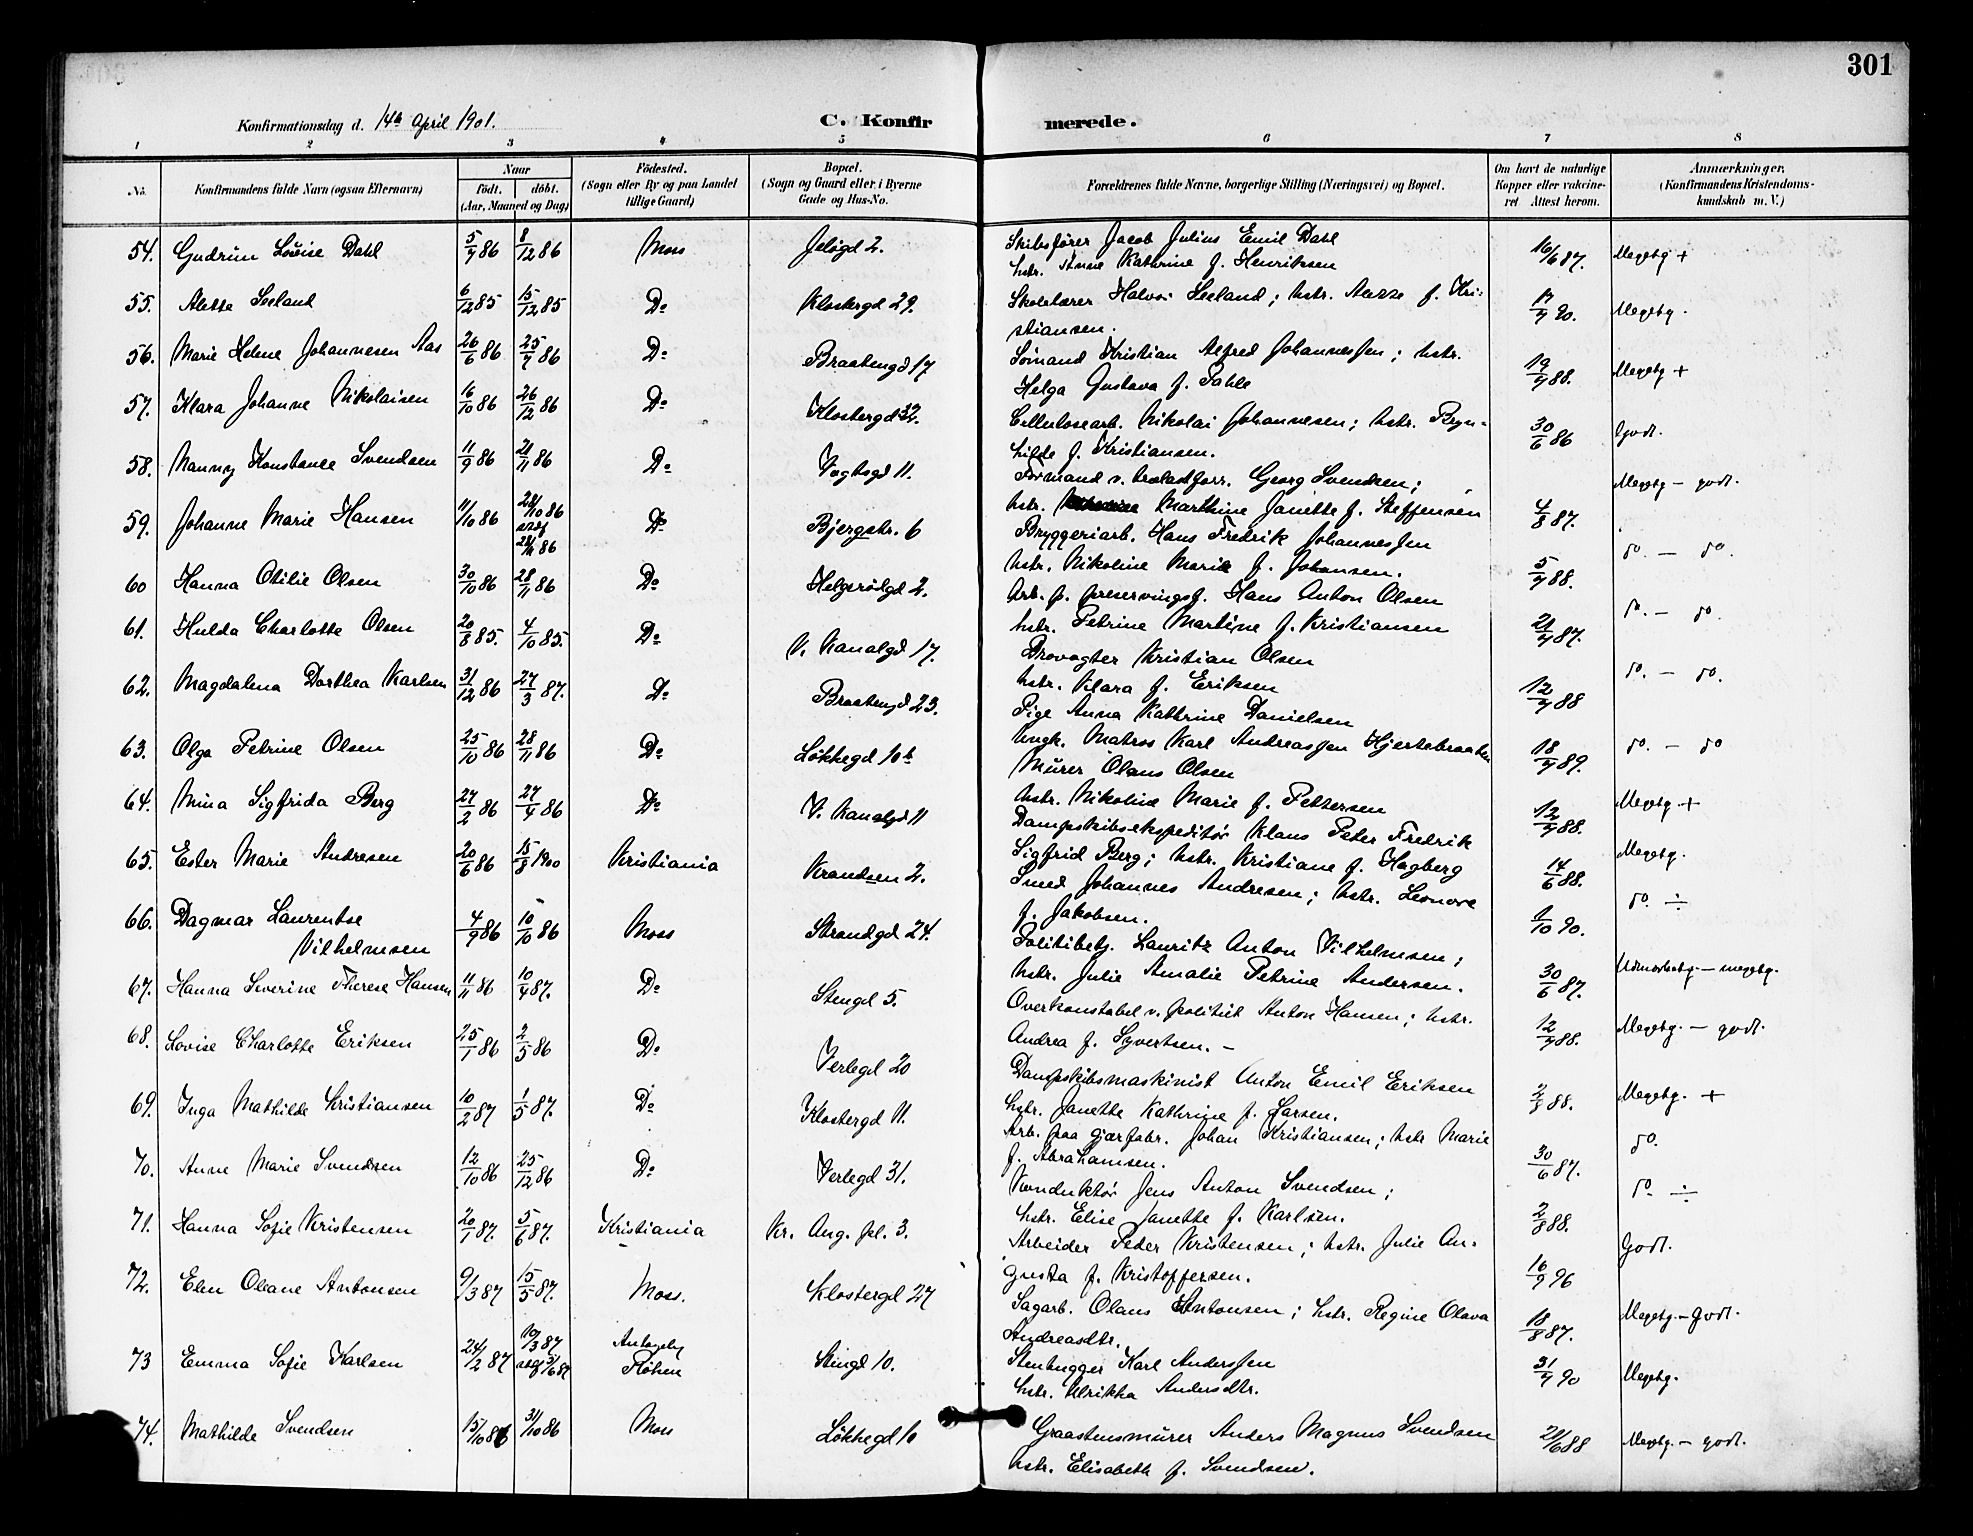 301
Konfirmationsdag d. 14de April 1901.
C. Konfirmerede.
1 2 3 4 5 6 7 8
No. Konfirmandens fulde Navn (ogsaa Efternavn) Naar födt. döbt. (Aar, Maaned og Dag) Födested. (Sogn eller By og paa Landet tillige Gaard) Bopæl. (Sogn og Gaard eller i Byerne Gade og Hus-No. Forældrenes fulde Navne, borgerlige Stilling (Næringsvei) og Bopæl. Om havt de naturlige Kopper eller vakcineret. Attest herom. Anmærkninger. (Konfirmandens Kristendomskundskab m. V.)
54. Gudrun Lovise Dahl 5/7 86 8/12 86 Moss Jeløgd 2. Skibsfører Jacob Julius Emil Dahl
hstr. Anne Kathrine f. Henriksen 16/6 87. Megetg +
55. Alette Seeland 6/12 85 15/12 85 Do Klostergd 29. Skolelærer Halvor Seeland; hstr. f. Kri-
stiansen. 17/7 90. Megetg.
56. Marie Helene Johannesen Aas 26/6 86 25/7 86 Do Braatengd 17 Sømand Kristian Alfred Johannessen; hstr.
Helga Gustava f. Pahle 19/7 88. Megetg +
57. Klara Johanne Nikolaisen 16/10 86 26/12 86 Do Klostergd 32. Cellulosearb. Nikolai Johannesen; hstr. Bryn-
hilde f. Kristiansen. 30/6 86 Godt.
58. Nanny Konstance Svendsen 11/9 86 21/11 86 Do Vogtsgd 11. Formand v. Georg Svendsen;
hstr. Marthine Janette f. Steffensen 4/8 87. Megetg - godt.
59. Johanne Marie Hansen 11/10 86 28/10 86 stadf 28/11 86 Do Bjergstr. 6 Bryggeriarb. Hans Fredrik Johannessen
hstr. Nikoline Marie f. Johansen. 5/7 88. do. - do.
60 Hanna Otilie Olsen 30/10 86 28/11 86 Do Helgerødgd 2. Arb. p. preservingsf. Hans Anton Olsen
hstr. Petrine Martine f. Kristiansen 21/7 87. do. - do.
61. Hulda Charlotte Olsen 20/8 85. 4/10 85. Do V. Kanalgd 17. Brovogter Kristian Olsen
hstr. Klara f. Eriksen 12/7 88 do. - do.
62. Magdalena Dorthea Karlsen 31/12 86 27/3 87. Do Braatengd 23. Pige Anna Kathrine Danielsen
Ungk. Matros Karl Andreassen Hjertebraaten 18/7 89. do. - do
63. Olga Petrine Olsen 25/10 86 28/11 86 Do Løkkegd 10b Murer Olaus Olsen
hstr. Nikoline Marie f. Pettersen 12/7 88. Megetg. +
64. Mina Sigfrida Berg 27/2 86 27/4 86 Do V. Kanalgd 11 Dampskibsekspeditør Klaus Peter Fredrik
Sigfrid Berg; hstr. Kristiane f. Hagberg 14/6 88. Megetg.
65. Ester Marie Andresen 20/6 86 15/8 1900 Kristiania Krandsen 2. Smed Johannes Andresen; hstr. Leonore
f. Jakobsen. 1/10 90. do. ÷
66. Dagmar Laurentse
Vilhelmsen 4/9 86 10/10 86 Moss Strandgd 24. Politibetj. Lauritz Anton Vilhelmsen;
hstr. Julie Amalie Petrine Andersen. 30/6 87. Udmerketg. - megetg.
67. Hanna Severine Therese Hansen 11/11 86 10/4 87. Do Stengd 5. Overkonstabel v. politiet Anton Hansen; hstr.
Andrea f. Syvertsen. - 12/7 88. Megetg. - godt.
68. Lovise Charlotte Eriksen 25/1 86 2/5 86 Do Verlegd 20 Dampskibsmaskinist Anton Emil Eriksen
hstr. Janette Kathrine f. Larsen. 2/8 88. Megetg. +
69. Inga Mathilde Kristiansen 10/2 87 1/5 87. Do Klostergd 11. Arb. paa gjærfabr. Johan Kristiansen; hstr Marie
f. Abrahamsen. 30/6 87. do.
70. Anne Marie Svendsen 12/10 86 25/12 86 Do Verlegd 31. Konduktør Jens Anton Svendsen;
hstr. Elise Janette f. Karlsen. 2/8 88. do ÷
71. Hanna Sofie Kristensen 20/1 87. 5/6 87. Kristiania Kr. Aug. pl. 3. Arbeider Peder Kristensen; hstr. Julie Au-
gusta f. Kristoffersen. 16/9 96 Godt.
72. Elen Oleane Antonsen 9/3 87 15/5 87. Moss. Klostergd 27 Sagarb. Olaus Antonsen; hstr. Regine Olava
Andreasdtr. 18/8 87. Megetg. - Godt.
73 Emma Sofie Karlsen 24/2 87 10/3 87 Stengd 10. Stenhugger Karl Anderssen
hstr. Ulrikka Andersdtr. 31/7 90 Megetg.
74. Mathilde Svendsen 15/10 86 31/10 86 Moss Løkkegd 10 Graastensmurer Anders Magnus Svendsen
hstr. Elisabeth f. Svendsen. 21/6 88 Megetg. - godt.